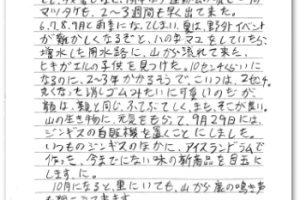 マツリタケも、2〜3週間も早く出て来た。
6.7.8.9月と雨季になってしまい、夏は、野外イベント
が難かしくなるぞと、ハウチマユをしていたら、
増水した用水路に、山から流れて来た、
ヒキガエルの子供を見つけた。10センチくらいに
なるのに、2〜3年かかるそうで、こいつは、2センチ。
丸くなった消しゴムみたいに可愛いのだが
顔は、親と同じ、ふてぶてしく、また、そこが良い。
山の生き物に、元気をもらって、9月29日には、
ジンギスの自販機を置くことにしました。
いつものジンギスのなかに、アイスランドラムで
作った、今までにない味の新商品を目玉に
します、に。
10月になると、里にいても、山から鹿の鳴き声